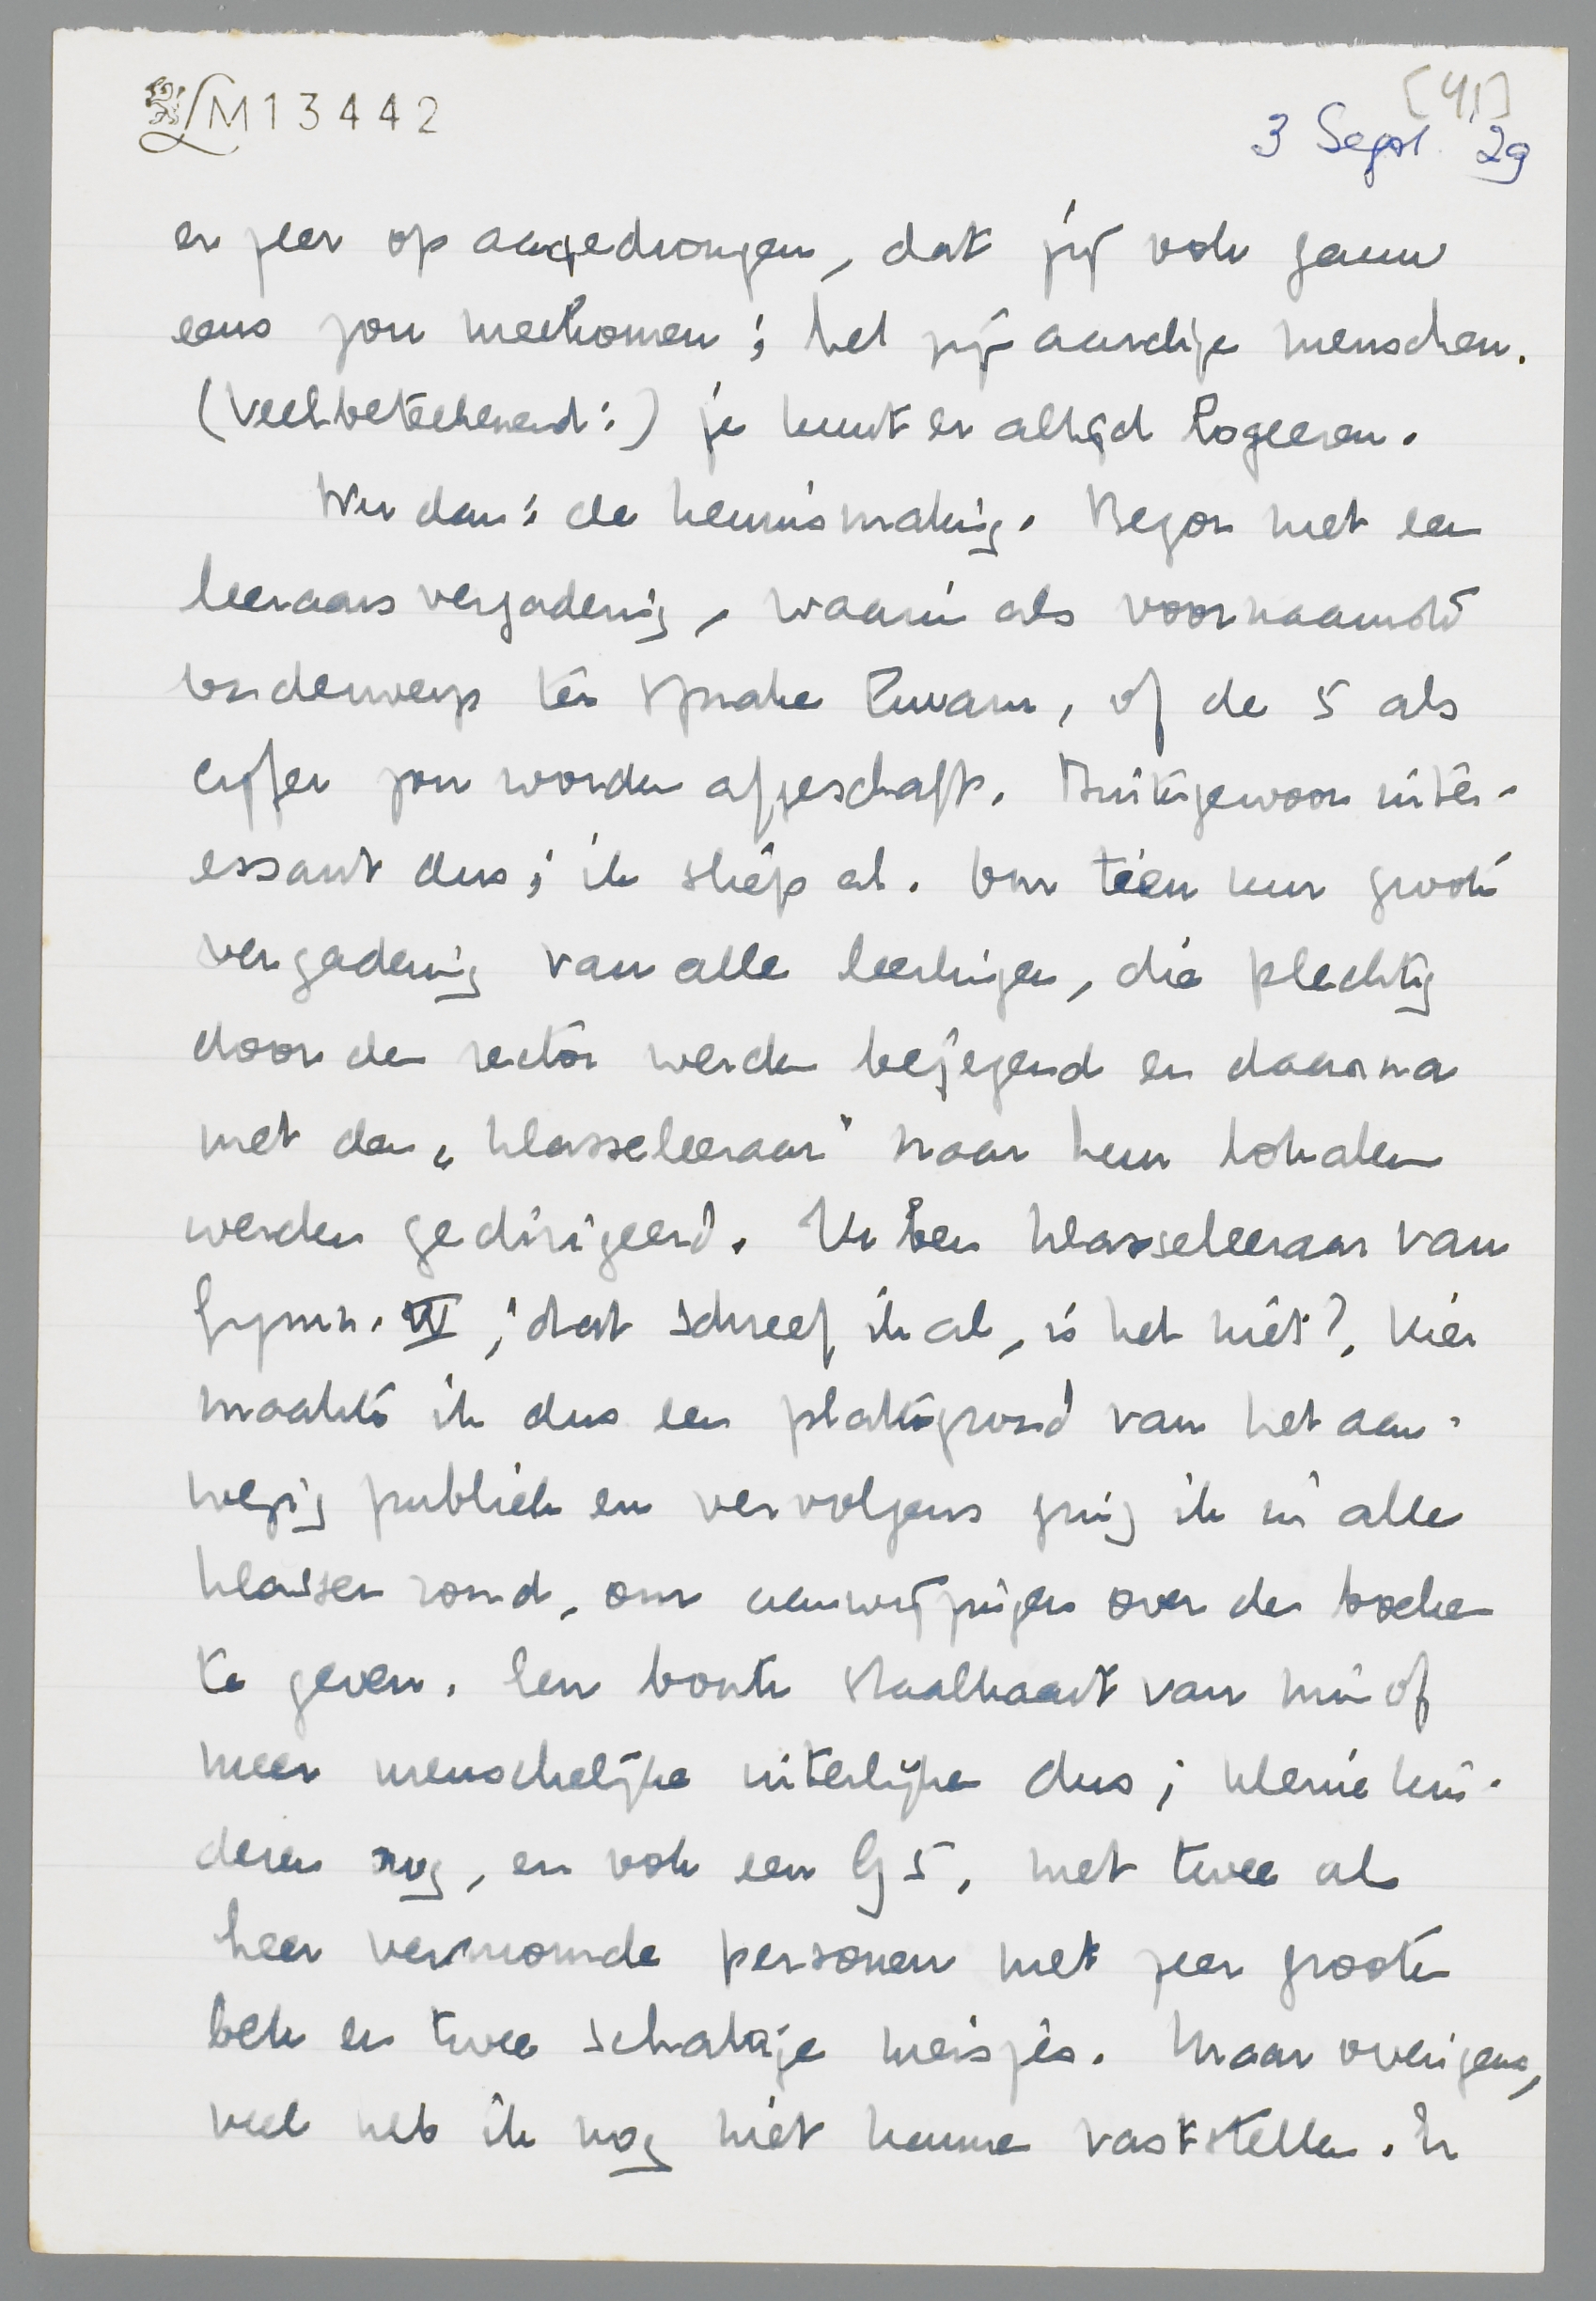 LM13442
[41]
3 Sept. '29
er zeer op aangedrongen, dat jij ook gauw
eens zou meekomen; het zijn aardige menschen.
(Veelbeteekenend:) je kunt er altijd logeeren.
Nu dan: de kennismaking. Begon met een
leeraarsvergadering, waarin als voornaamste
onderwerp ter sprake kwam, of de 5 als
cijfer zou worden afgeschaft. Buitengewoon inter-
essant dus; ik sliep al. Om tien uur groote
vergadering van alle leerlingen, die plechtig
door den rector werden bejegend en daarna
met den „klasseleeraar" naar hun lokalen
werden gedirigeerd. Ik ben klasseleeraar van
Gymn. VI; dat schreef ik al, is het niet? Hier
maakte ik dus een plattegrond van het aan-
wezig publiek en vervolgens ging ik in alle
klassen rond, om aanwijzingen over de boeken
te geven. Een bonte staalkaart van min of
meer menschelijke uiterlijken dus; kleine kin-
deren nog, en ook een G5, met twee als
heer vermomde personen met zeer groote
bek en twee schattige meisjes. Maar overigens,
veel heb ik nog niet kunnen vaststellen. Er